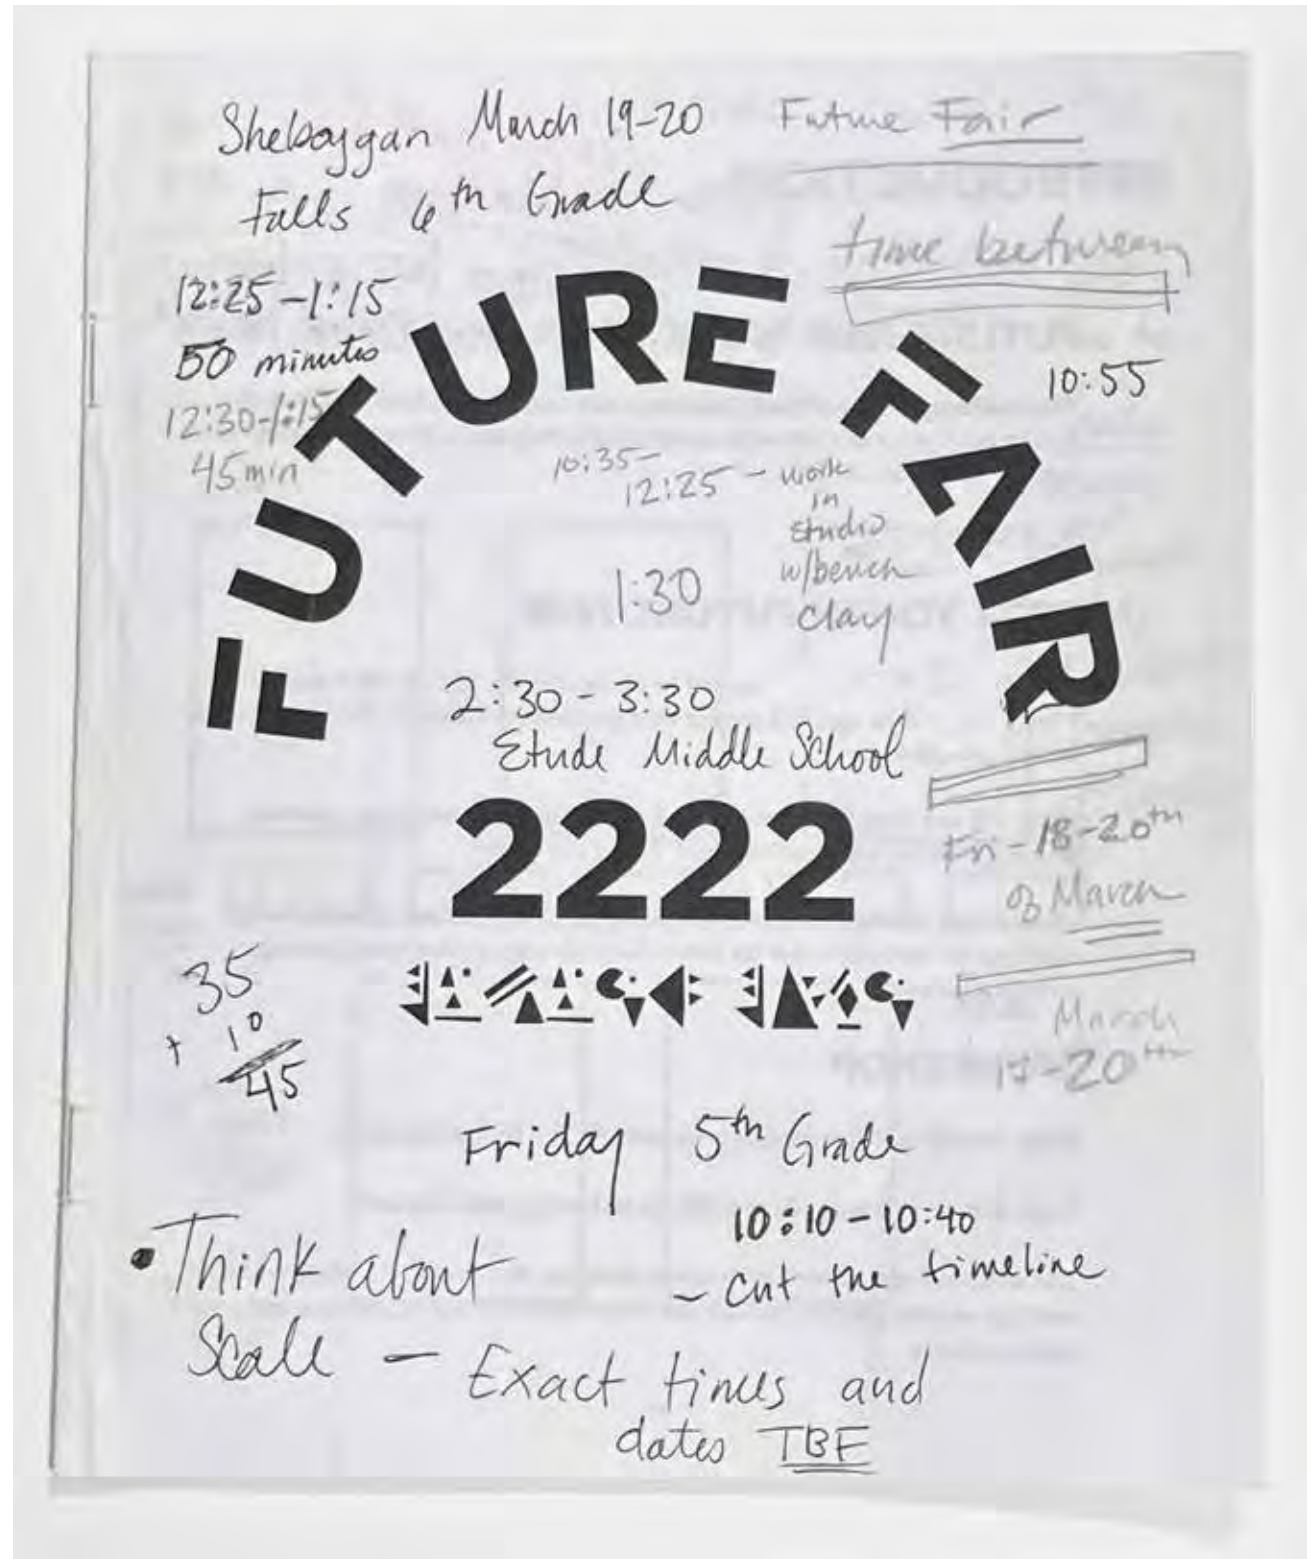 Sheboygan March 19-20
Falls 6th Grade
Future Fair
time between
12:25-1:15
50 minutes
12:30-1:15
45 min
FUTURE FAIR
10:55
10:35-
12:25 - work
in
studio
w/bench
clay
1:30
2:30 - 3:30
Etude Middle School
2222
Fri - 18-20th
of March
March
17-20th
35
+ 10
45
Friday 5th Grade
10:10 - 10:40
- cut the timeline
• Think about
Scale - Exact times and
dates TBF